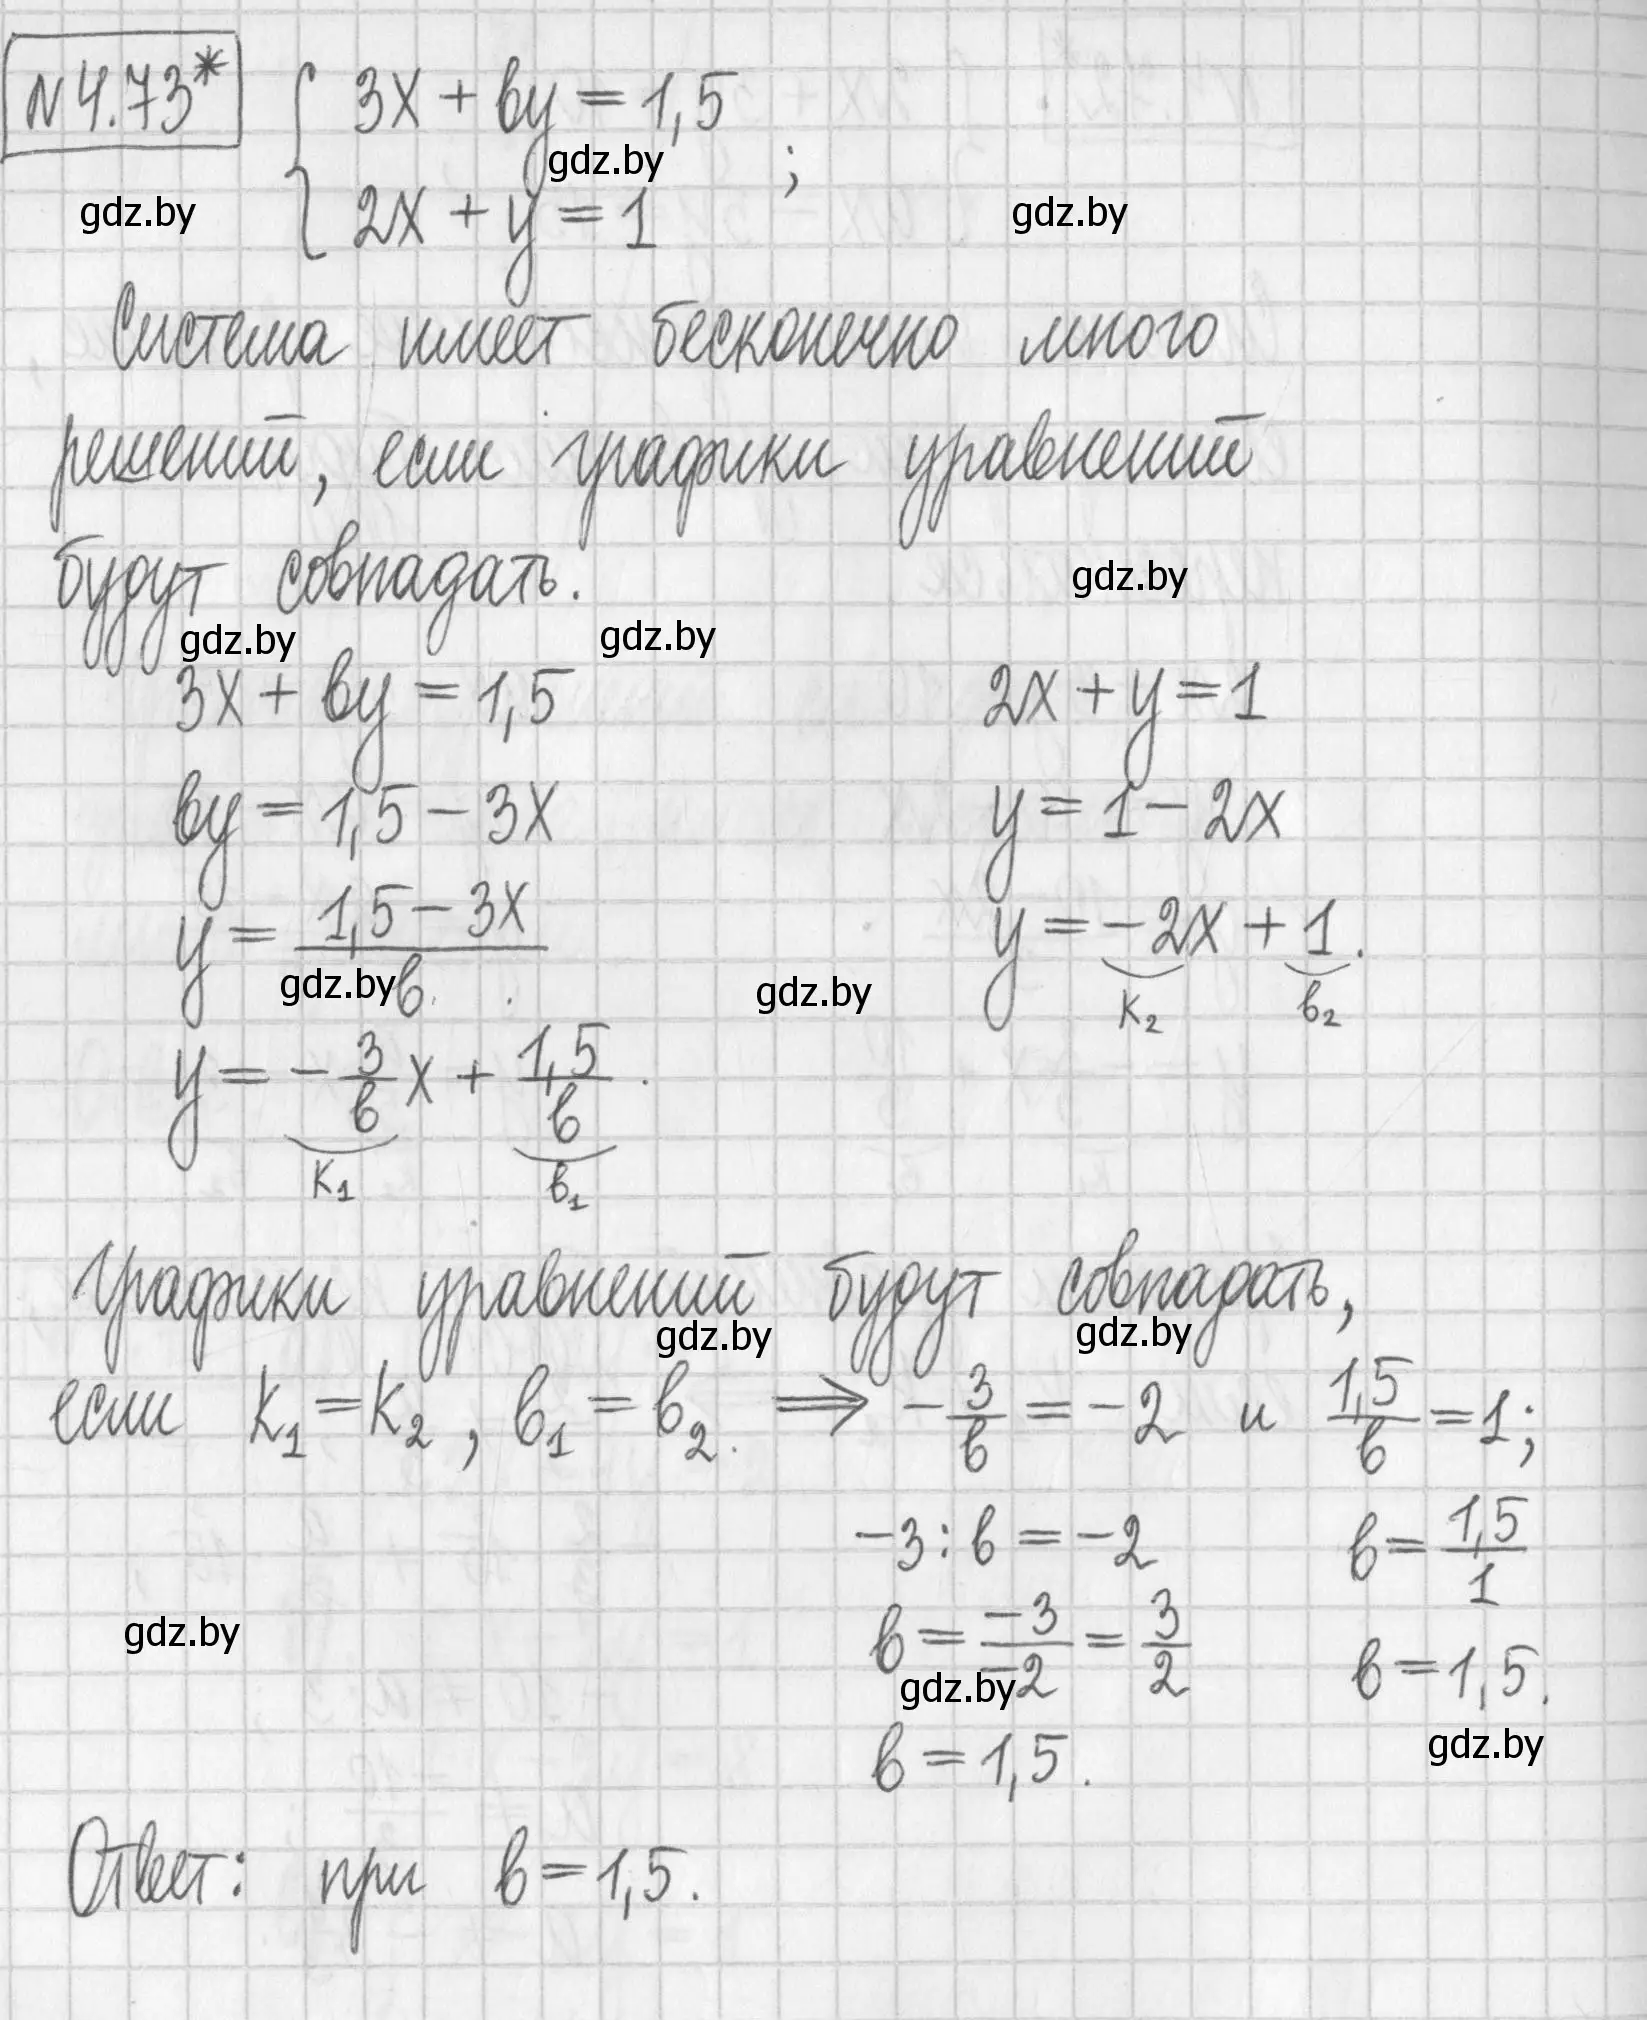 №4.73* { 3x + by = 1,5
gdz.by
gdz.by 2x + y = 1 ; gdz.by
Система имеет бесконечно много
решений, если графики уравнений
будут совпадать. gdz.by
gdz.by gdz.by
3x + by = 1,5 2x + y = 1
by = 1,5 − 3x y = 1 − 2x
y = (1,5 − 3x)/b y = −2x + 1.
gdz.by gdz.by k₂ b₂
y = −3/b x + 1,5/b.
k₁ b₁
Графики уравнений будут совпадать,
gdz.by gdz.by
если k₁ = k₂, b₁ = b₂. ⇒ −3/b = −2 и 1,5/b = 1;
−3 : b = −2 b = 1,5/1
gdz.by b = −3/−2 = 3/2 b = 1,5.
gdz.by gdz.by
b = 1,5.
Ответ: при b = 1,5.